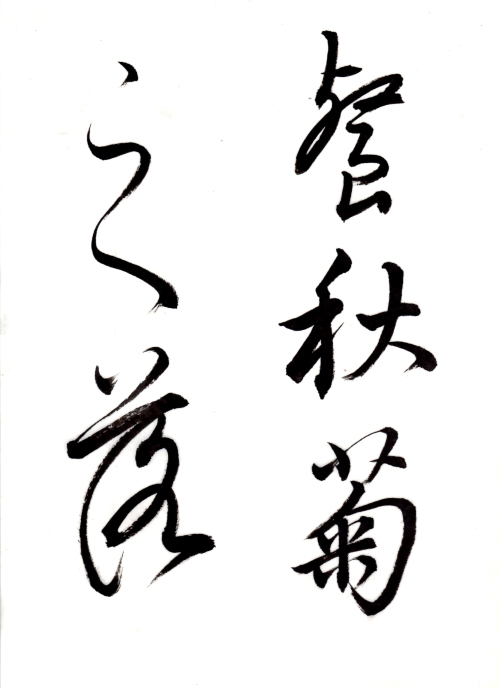 餐秋菊
之落